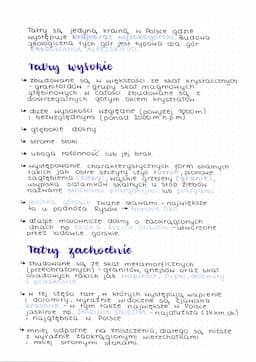 Tatry są jedyną krainą w Polsce gdzie
występuje krajobraz wysokogórski. Budowa
geologiczna tych gór jest typowa dla gór
FAŁDOWANIA ALPEJSKIEGO.
Tatry wysokie
↳ zbudowane są w większości ze skał krystalicznych
- granitoidów - grupy skał magmowych
głębinowych w całości zbudowane są z
dostrzegalnych gołym okiem kryształów.
↳ duże wysokości względne (powyżej 400m)
i bezwzględnymi (ponad 2000 m n.p.m)
↳ głębokie doliny
↳ strome stoki
↳ uboga roślinność lub jej brak
↳ występowanie charakterystycznych form skalnych
takich jak ostre szczyty czyli turnie, pionowe
zagłębienia (żleby), wąskie grzbiety (granie),
wysypiska odłamków skalnych u stóp żlebów
nazwane stożkami piargowymi lub
↳ jeziora górskie zwane stawami - największe
to u podnóża Rysów → Morskie Oko
↳ długie malownicze doliny o zaokrąglonych
dnach np. Dolina - utworzone
przez lodowce górskie.
Tatry zachodnie
↳ zbudowane są ze skał metamorficznych
(przeobrażonych) - granitów, gnejsów oraz skał
osadowych takich jak wapienie, dolomity
i piaskowce
↳ w tej części Tatr, w których występują wapienie
i dolomity, wyraźnie widoczne są zjawiska
krasowe - w tym także największe w Polsce
jaskinie np. JASKINIA ŚNIEŻNA - najdłuższa (24km ok)
i najgłębsza w Polsce
↳ mniej odporne na zniszczenia, dlatego są niższe
z wyraźnie zaokrąglonymi wierzchołkami
i mniej stromymi stokami.